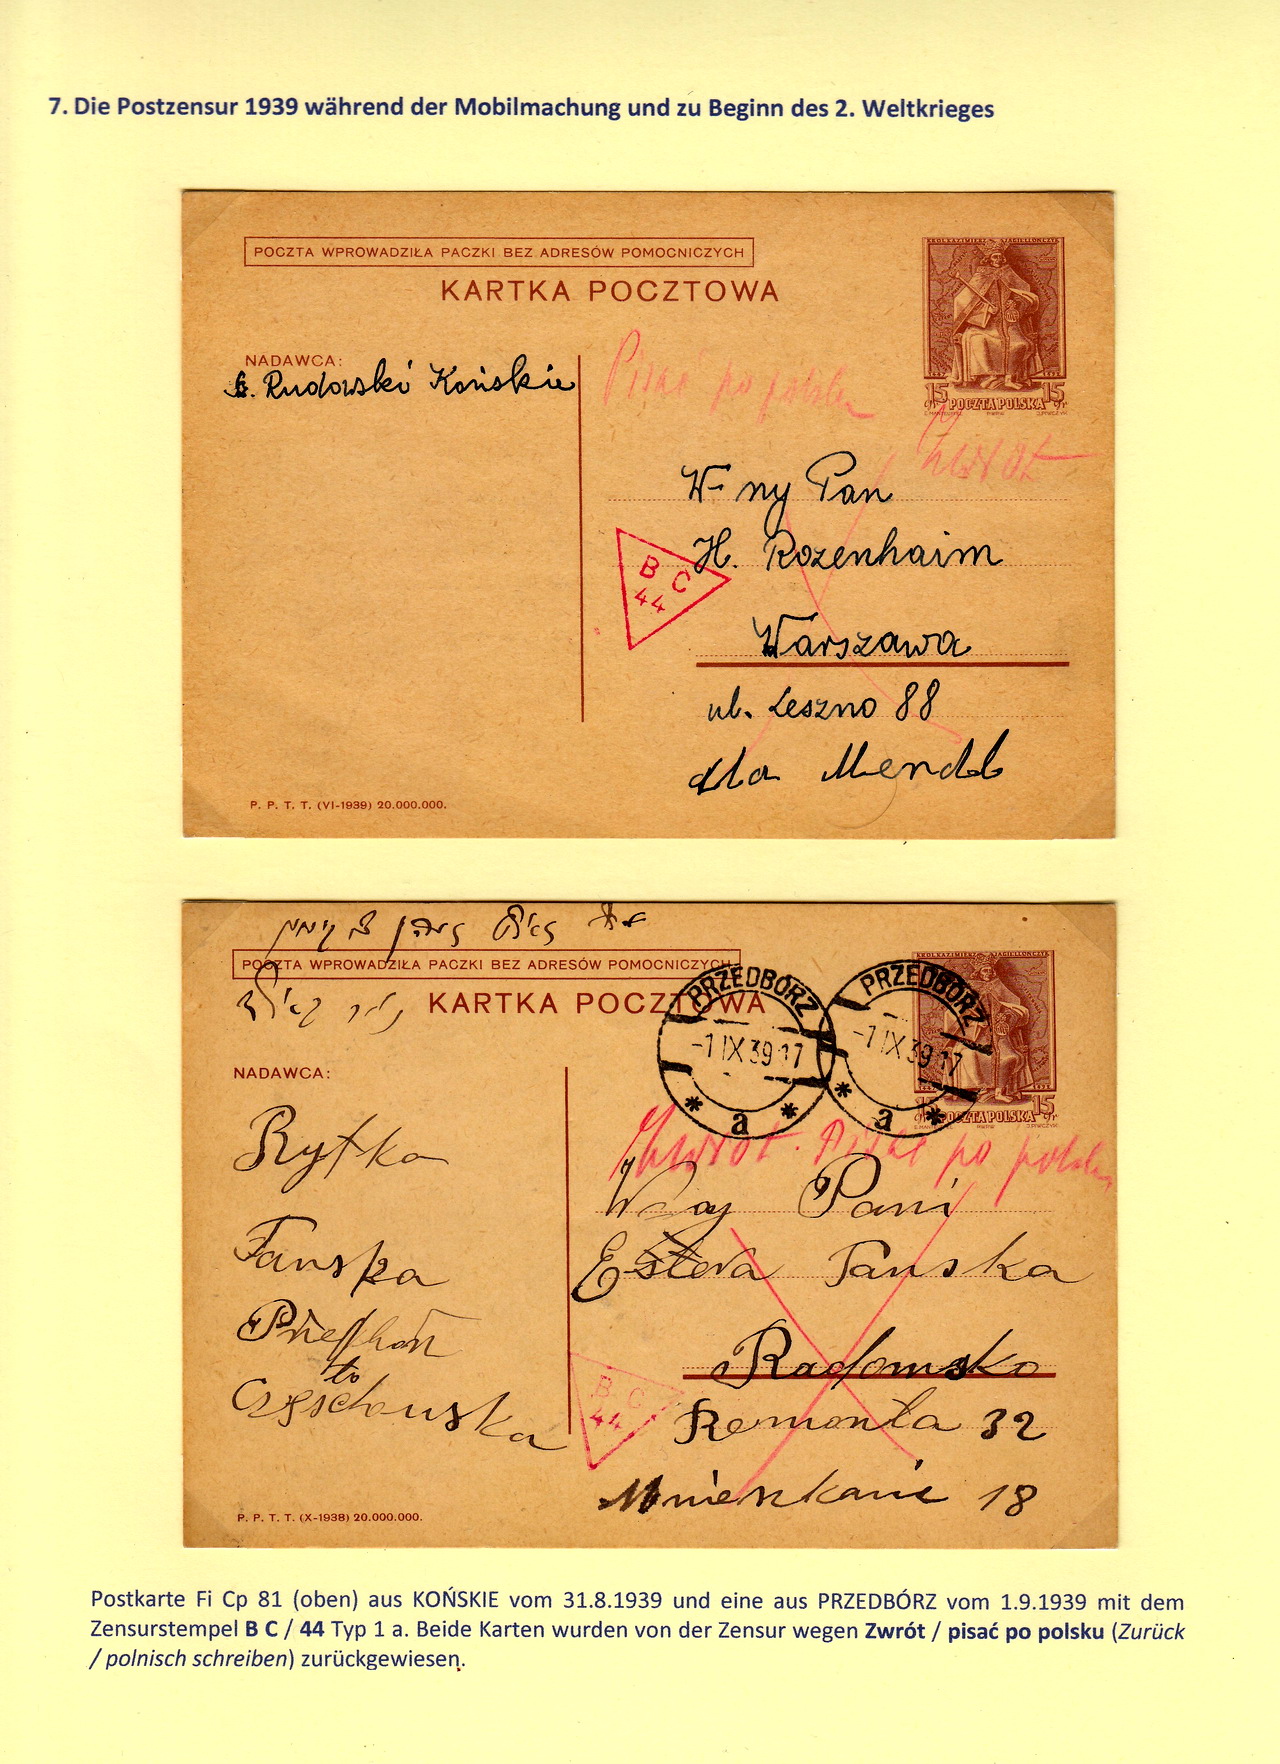 7. Die Postzensur 1939 während der Mobilmachung und zu Beginn des 2. Weltkrieges
POCZTA WPROWADZIŁA PACZKI BEZ ADRESÓW POMOCNICZYCH
KARTKA POCZTOWA
KRÓL KAZIMIERZ JAGIELLOŃCZYK
15 gr POCZTA POLSKA 15 gr
NADAWCA:
Rudowski Końskie
Pisać po polsku
Zwrot
W-ny Pan
H. Rozenhaim
B C
44
Warszawa
ul. Leszno 88
dla Mendl
P. P. T. T. (VI-1939) 20.000.000.
POCZTA WPROWADZIŁA PACZKI BEZ ADRESÓW POMOCNICZYCH
KARTKA POCZTOWA
KRÓL KAZIMIERZ JAGIELLOŃCZYK
15 gr POCZTA POLSKA 15 gr
PRZEDBÓRZ
-1 IX 39 17
a
PRZEDBÓRZ
-1 IX 39 17
a
NADAWCA:
Zwrot. Pisać po polsku
Ryfka
Pani
Tanska
Radomsko
B C
44
Remonta 32
Mnieszkanie 18
P. P. T. T. (X-1938) 20.000.000.
Postkarte Fi Cp 81 (oben) aus KOŃSKIE vom 31.8.1939 und eine aus PRZEDBÓRZ vom 1.9.1939 mit dem
Zensurstempel B C / 44 Typ 1 a. Beide Karten wurden von der Zensur wegen Zwrót / pisać po polsku (Zurück
/ polnisch schreiben) zurückgewiesen.